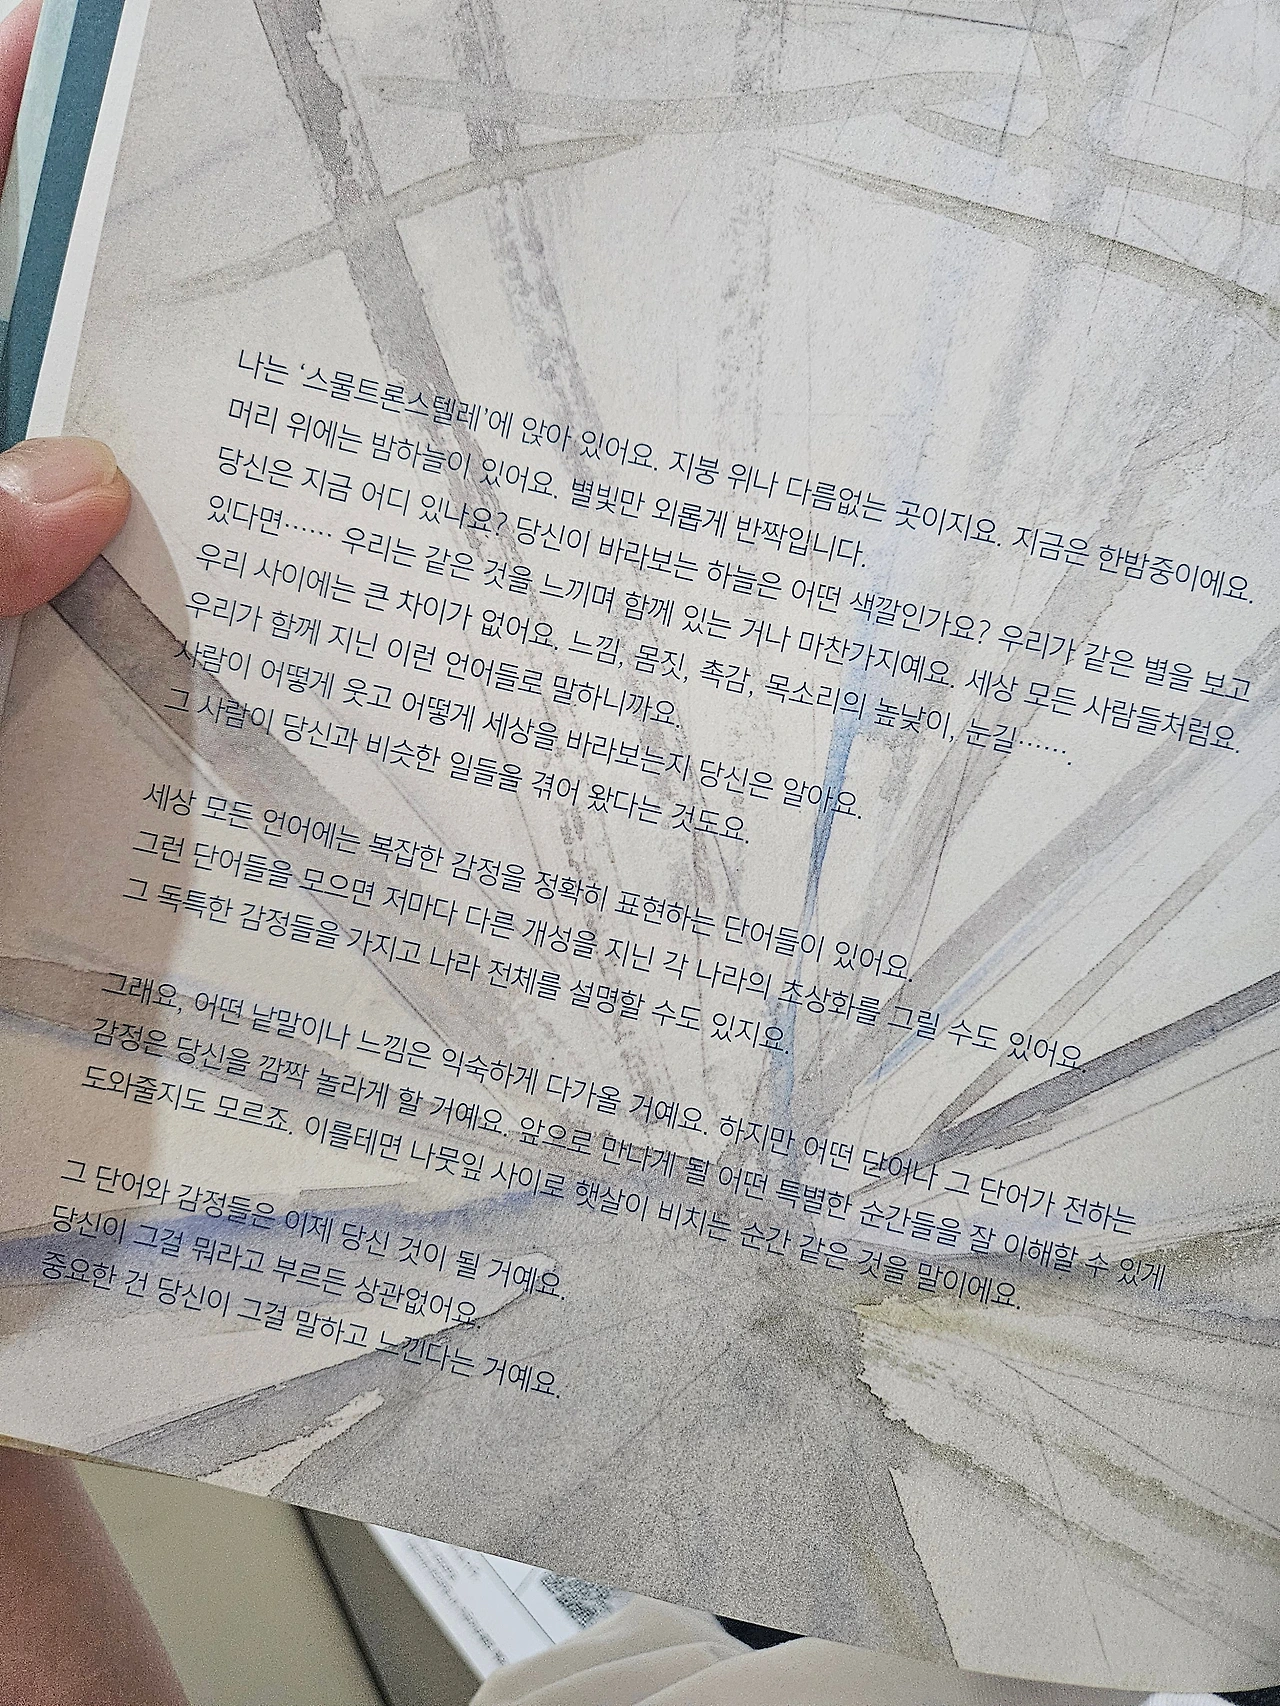 나는 ‘스물트론스텔레’에 앉아 있어요. 지붕 위나 다름없는 곳이지요. 지금은 한밤중이에요.
머리 위에는 밤하늘이 있어요. 별빛만 외롭게 반짝입니다.
당신은 지금 어디 있나요? 당신이 바라보는 하늘은 어떤 색깔인가요? 우리가 같은 별을 보고
있다면…… 우리는 같은 것을 느끼며 함께 있는 거나 마찬가지예요. 세상 모든 사람들처럼요.
우리 사이에는 큰 차이가 없어요. 느낌, 몸짓, 촉감, 목소리의 높낮이, 눈길……
우리가 함께 지닌 이런 언어들로 말하니까요.
사람이 어떻게 웃고 어떻게 세상을 바라보는지 당신은 알아요.
그 사람이 당신과 비슷한 일들을 겪어 왔다는 것도요.
세상 모든 언어에는 복잡한 감정을 정확히 표현하는 단어들이 있어요.
그런 단어들을 모으면 저마다 다른 개성을 지닌 각 나라의 초상화를 그릴 수도 있어요.
그 독특한 감정들을 가지고 나라 전체를 설명할 수도 있지요.
그래요, 어떤 낱말이나 느낌은 익숙하게 다가올 거예요. 하지만 어떤 단어나 그 단어가 전하는
감정은 당신을 깜짝 놀라게 할 거예요. 앞으로 만나게 될 어떤 특별한 순간들을 잘 이해할 수 있게
도와줄지도 모르죠. 이를테면 나뭇잎 사이로 햇살이 비치는 순간 같은 것을 말이에요.
그 단어와 감정들은 이제 당신 것이 될 거예요.
당신이 그걸 뭐라고 부르든 상관없어요.
중요한 건 당신이 그걸 말하고 느낀다는 거예요.